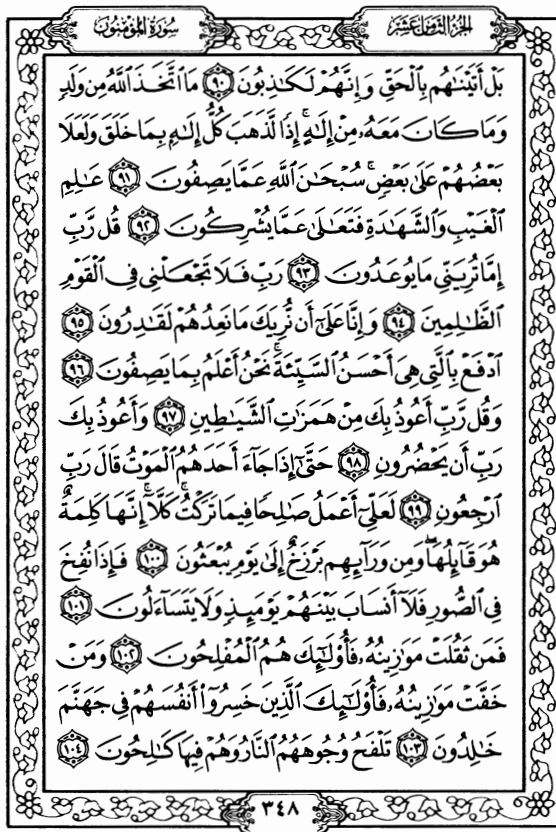 الجزء الثامن عشر
سورة المؤمنون
بَلْ أَتَيْنَٰهُم بِالْحَقِّ وَإِنَّهُمْ لَكَٰذِبُونَ ٩٠ مَا اتَّخَذَ اللَّهُ مِن وَلَدٍ
وَمَا كَانَ مَعَهُۥ مِنْ إِلَٰهٍ ۚ إِذًا لَّذَهَبَ كُلُّ إِلَٰهٍۭ بِمَا خَلَقَ وَلَعَلَا
بَعْضُهُمْ عَلَىٰ بَعْضٍ ۚ سُبْحَٰنَ اللَّهِ عَمَّا يَصِفُونَ ٩١ عَٰلِمِ
الْغَيْبِ وَالشَّهَٰدَةِ فَتَعَٰلَىٰ عَمَّا يُشْرِكُونَ ٩٢ قُل رَّبِّ
إِمَّا تُرِيَنِّي مَا يُوعَدُونَ ٩٣ رَبِّ فَلَا تَجْعَلْنِي فِي الْقَوْمِ
الظَّٰلِمِينَ ٩٤ وَإِنَّا عَلَىٰٓ أَن نُّرِيَكَ مَا نَعِدُهُمْ لَقَٰدِرُونَ ٩٥
ادْفَعْ بِالَّتِي هِيَ أَحْسَنُ السَّيِّئَةَ ۚ نَحْنُ أَعْلَمُ بِمَا يَصِفُونَ ٩٦
وَقُل رَّبِّ أَعُوذُ بِكَ مِنْ هَمَزَٰتِ الشَّيَٰطِينِ ٩٧ وَأَعُوذُ بِكَ
رَبِّ أَن يَحْضُرُونِ ٩٨ حَتَّىٰٓ إِذَا جَآءَ أَحَدَهُمُ الْمَوْتُ قَالَ رَبِّ
ارْجِعُونِ ٩٩ لَعَلِّيٓ أَعْمَلُ صَٰلِحًا فِيمَا تَرَكْتُ ۚ كَلَّآ ۚ إِنَّهَا كَلِمَةٌ
هُوَ قَآئِلُهَا ۖ وَمِن وَرَآئِهِم بَرْزَخٌ إِلَىٰ يَوْمِ يُبْعَثُونَ ١٠٠ فَإِذَا نُفِخَ
فِي الصُّورِ فَلَآ أَنسَابَ بَيْنَهُمْ يَوْمَئِذٍ وَلَا يَتَسَآءَلُونَ ١٠١
فَمَن ثَقُلَتْ مَوَٰزِينُهُۥ فَأُو۟لَٰٓئِكَ هُمُ الْمُفْلِحُونَ ١٠٢ وَمَنْ
خَفَّتْ مَوَٰزِينُهُۥ فَأُو۟لَٰٓئِكَ الَّذِينَ خَسِرُوٓا۟ أَنفُسَهُمْ فِي جَهَنَّمَ
خَٰلِدُونَ ١٠٣ تَلْفَحُ وُجُوهَهُمُ النَّارُ وَهُمْ فِيهَا كَٰلِحُونَ ١٠٤
٣٤٨